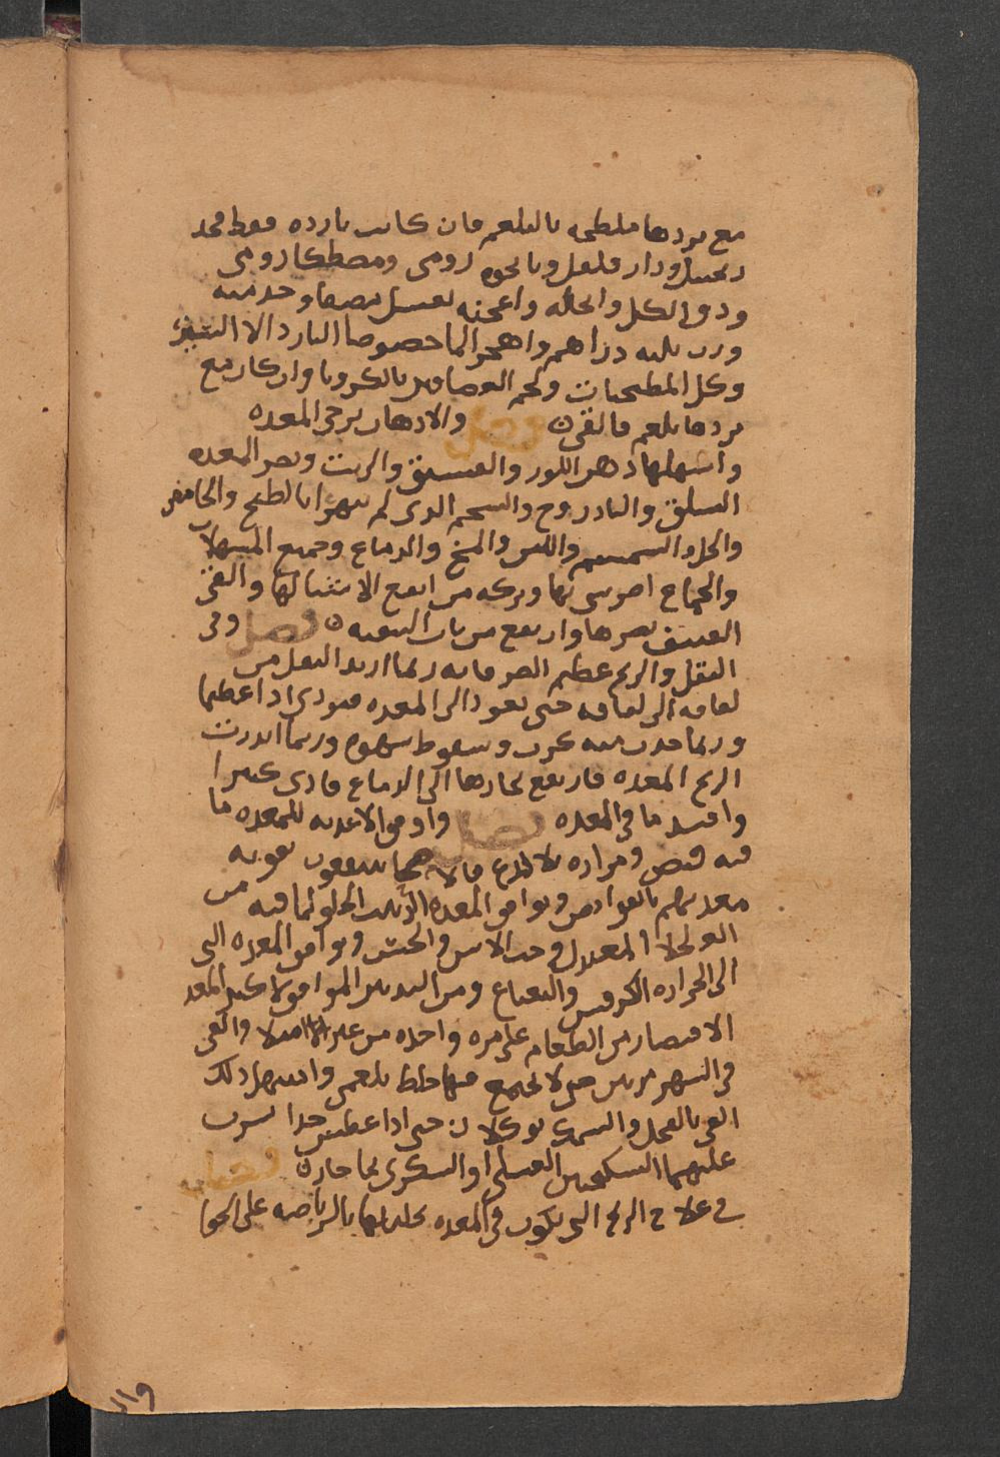 مع بردها ملطخه بالبلغم فان كانت بارده فقط فخذ
زنجبيل ودار فلفل ونانخوه رومى ومصطكا رومى
ودق الكل وانخله واعجنه بعسل مصفا وخذ منه
وزن ثلثه دراهم واهجر الما خصوصا البارد الا اليسير
وكل المطجنات ولحم العصافير بالكرويا وان كان مع
بردها بلغم فالقى فصل والادهان يرخى المعده
واسهلها دهن اللوز والفستق والزيت ويضر المعده
السلق والبادروج والسلجم الذى لم يتهرا بالطبخ والحامض
والحلو السمسم واللبن والمخ والدماغ وجميع المسهلات
والجماع اضر شى بها وتركه من انفع الاشيا لها والقى
العنيف يضرها وان نفع من باب التنقيه فصل وفى
الثقل والريح عظيم الضر فانه ربما ارتد الثقل من
لفافه الى لفافه حتى يعود الى المعده فيوذى اذا عظيما
وربما حدث منه كرب وسقوط شهوه وربما ارتدت
الريح المعده فارتفع بخارها الى الدماغ فاذى كثيرا
وافسد ما فى المعده فصل واوفق الاغذيه للمعده ما
فيه قبض ومراره بلا لذع ينتفعون بتقويه
معدتهم بالقوابض ويوافق المعده الزبيب الحلو لما فيه من
المعتدل وحب الاس ويوافق المعده التى
الى الحراره الكرفس والنعناع ومن التدبير الموافق لاكثر المعد
الاقتصار من الطعام على مره واحده من غير امتلا والقى
فى الشهر مرتين حتى لا يجتمع فيها خلط بلغمى واسهل ذلك
القى بالفجل والسمك يوكلان حتى اذا عطش جدا شرب
عليهما السكنجبين العسلى او السكرى بما حار فصل
فى علاج الريح التى تكون فى المعده تحليلها بالرياضه على الخوا